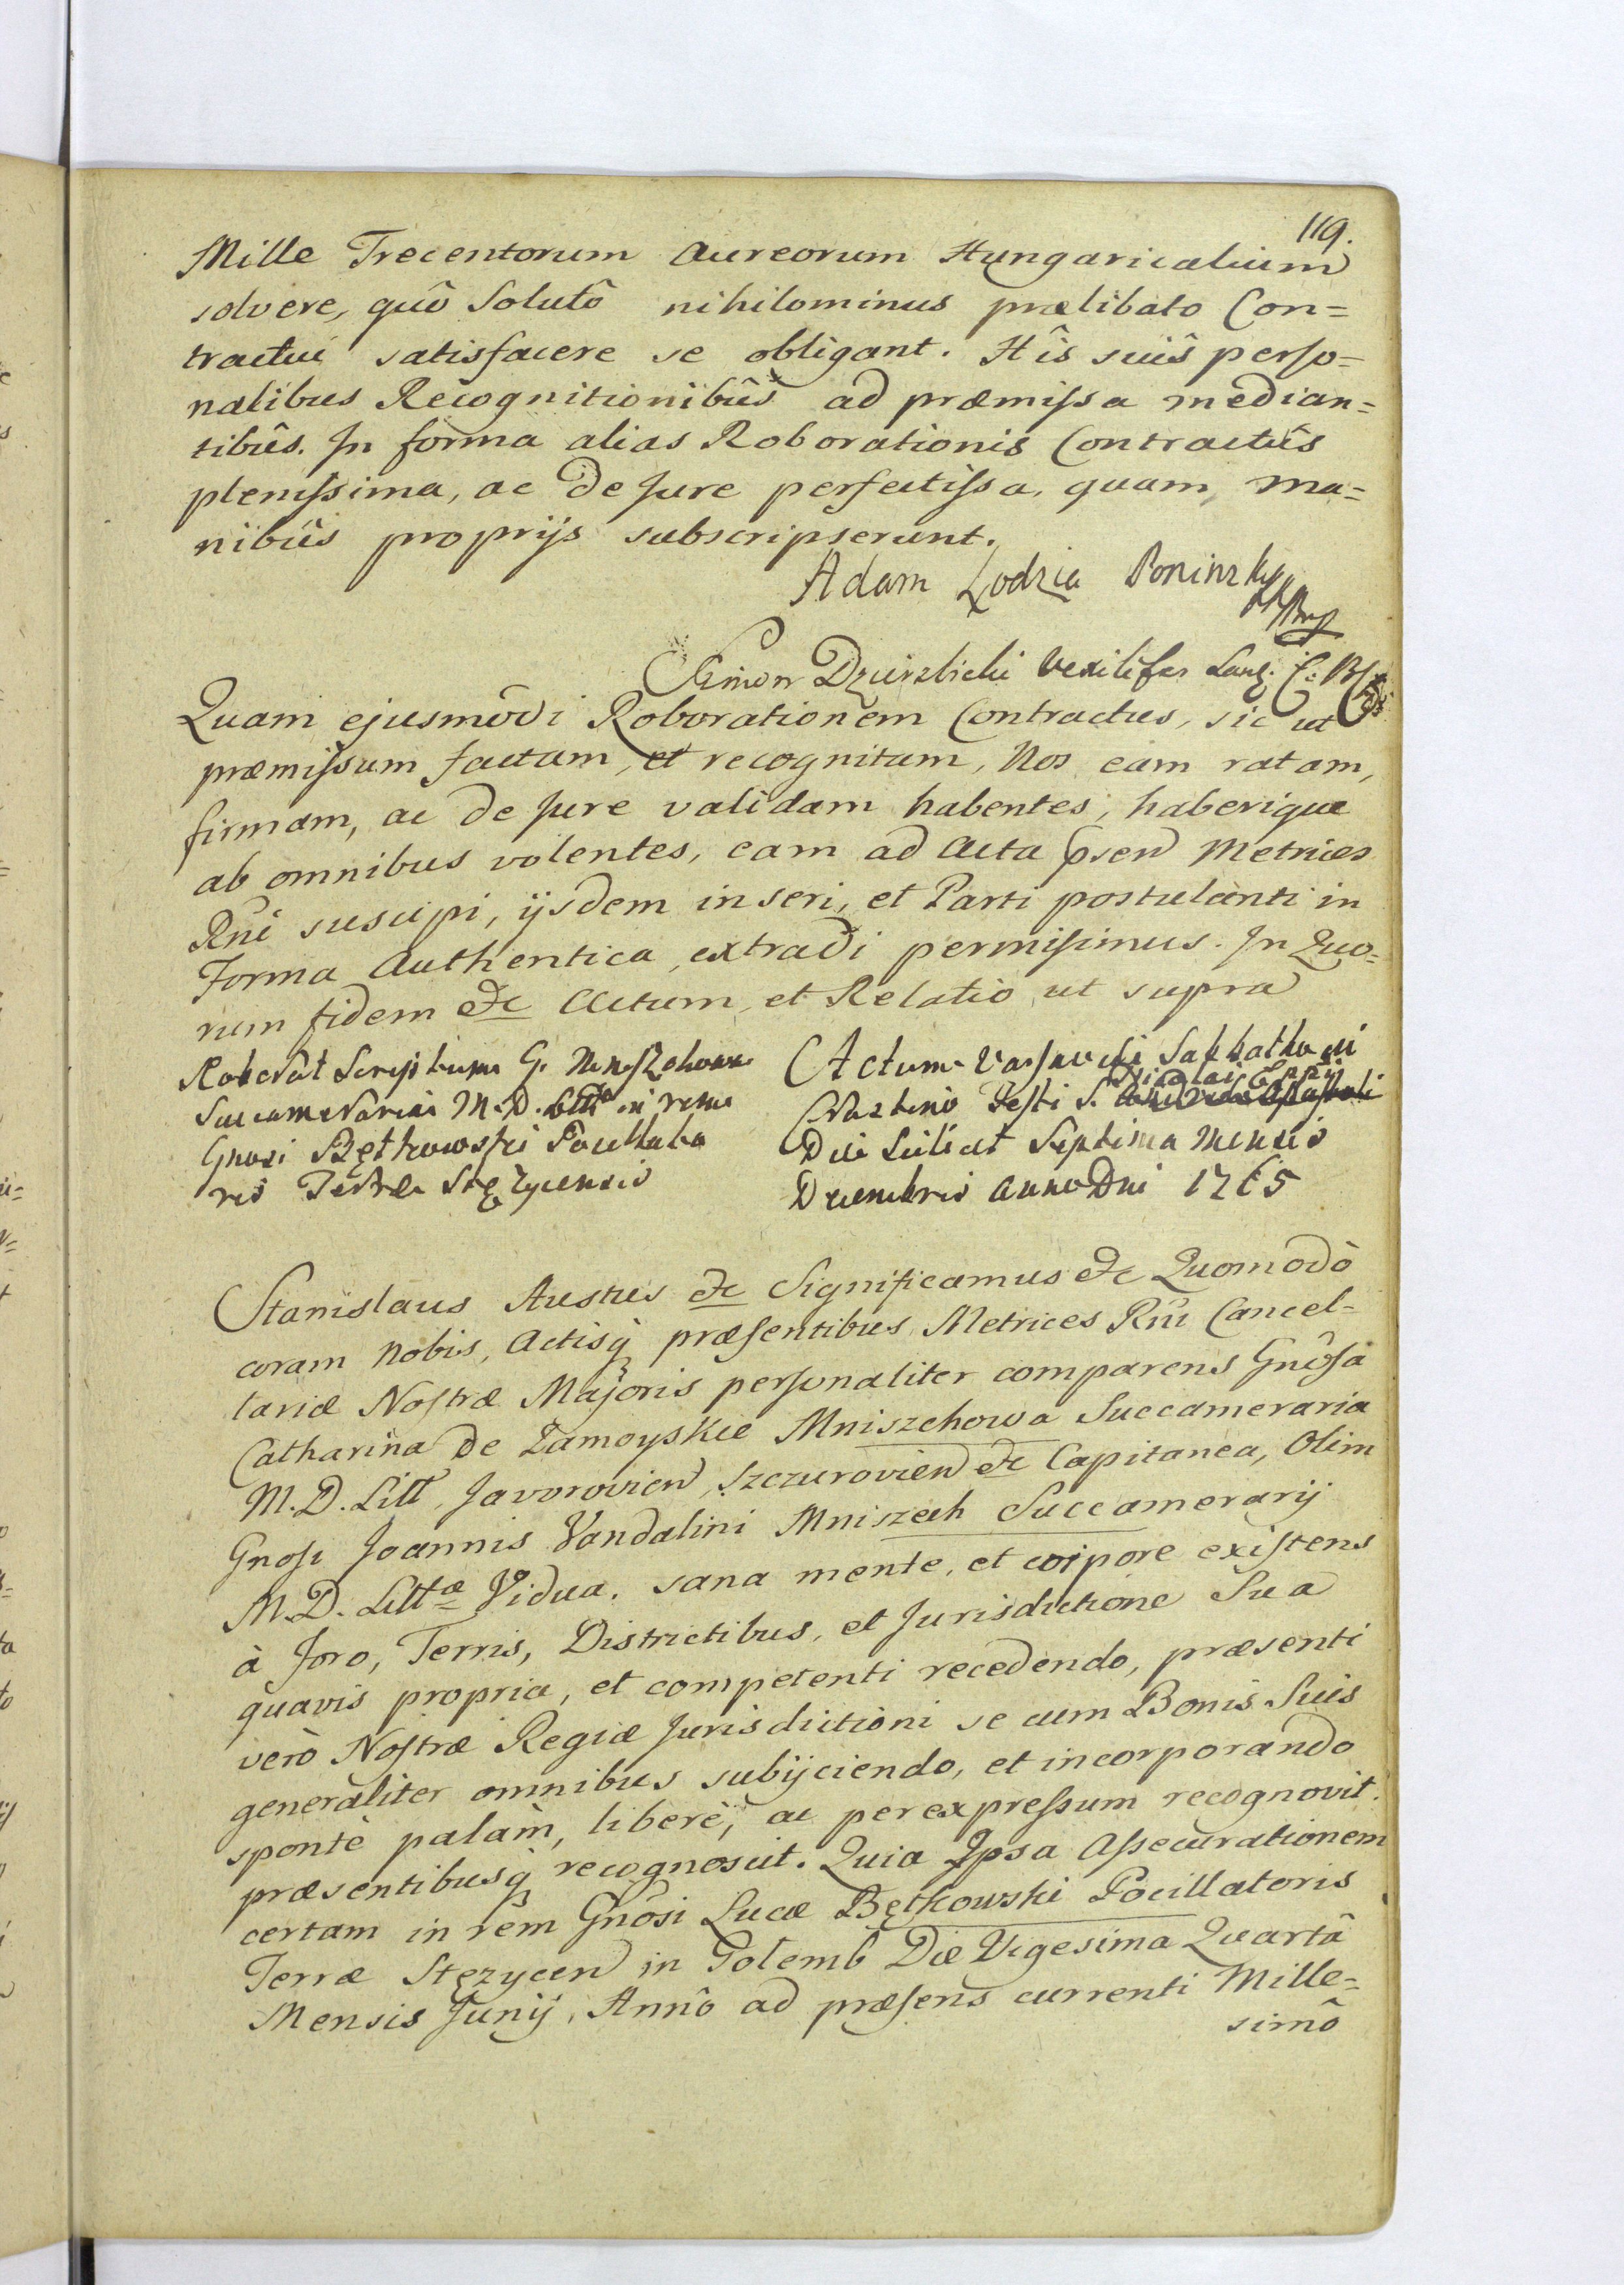 119.
Mille Trecentorum Aureorum Hungaricalium
solvere, quô Solutô nihilominus prælibato Con=
tractui satisfacere se obligant. Hîs suis perso=
nalibus Recognitionibûs ad præmissa median=
tibûs. In forma alias Roborationis Contractûs
plenissima, ac de Jure perfectissa, quam ma=
nibûs proprijs subscripserunt.
Adam Lodzia Poninsky
Simon Dzierzbicki Vexilifer Lanc:
Quam ejusmodi Roborationem Contractus, sic ut
præmissum factum, et recognitum, Nos eam ratam,
firmam, ac de Jure validam habentes, haberique
ab omnibus volentes, eam ad Acta psen Metrices
Rni suscipi, ijsdem inseri, et Parti postulanti in
Forma Authentica, extradi permisimus. In Quo=
rum fidem &c Actum, et Relatio ut supra
Roborat Scriptum G. Mniszchowa
Succameraria M. D. Litt. in rem
Gnosi Bętkowski Pocillato
ris Terræ Stężycensis
Actum Varsaviæ Sabbatho in
Crastino Festi S. Nicolai Eppi
Die Scilicet Septima Mensis
Decembris Anno Dni 1765
Stanislaus Augustus &c Significamus &c Quomodò
coram Nobis, Actisq præsentibus Metrices Rni Cancel=
lariæ Nostræ Majoris personaliter comparens Gnôsa
Catharina de Zamoyskie Mniszchowa Succameraria
M. D. Litt, Javorovien, Szczurovien &c Capitanea, Olim
Gnosi Joannis Vandalini Mniszech Succamerarij
M. D. Littæ Vidua. sana mente, et corpore existens
à Foro, Terris, Districtibus, et Jurisdictione Sua
quavis propria, et competenti recedendo, præsenti
verò Nostræ Regiæ Jurisdictioni se cum Bonis Suis
generaliter omnibus subijciendo, et incorporando
spontè palàm, liberè, ac per expressum recognovit.
præsentibusq recognoscit. Quia Ipsa Assecurationem
certam in rem Gnôsi Lucæ Bętkowski Pocillatoris
Terræ Stęzycen in Golemb Die Vigesima Quartâ
Mensis Junij, Annô ad præsens currenti Mille=
simô